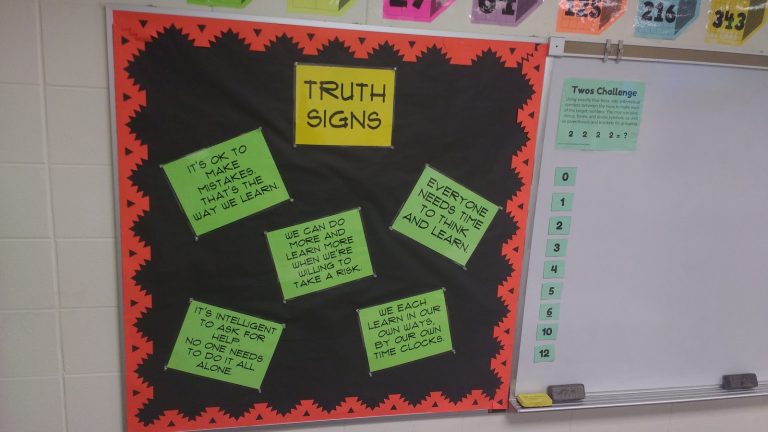 27
64
125
216
343
TRUTH
SIGNS
IT'S OK TO
MAKE
MISTAKES.
THAT'S THE
WAY WE LEARN.
EVERYONE
NEEDS TIME
TO THINK
AND LEARN.
WE CAN DO
MORE AND
LEARN MORE
WHEN WE'RE
WILLING TO
TAKE A RISK.
IT'S INTELLIGENT
TO ASK FOR
HELP
NO ONE NEEDS
TO DO IT ALL
ALONE
WE EACH
LEARN IN OUR
OWN WAYS,
BY OUR OWN
TIME CLOCKS.
Twos Challenge
2 2 2 2 = ?
0
1
2
3
4
5
6
10
12